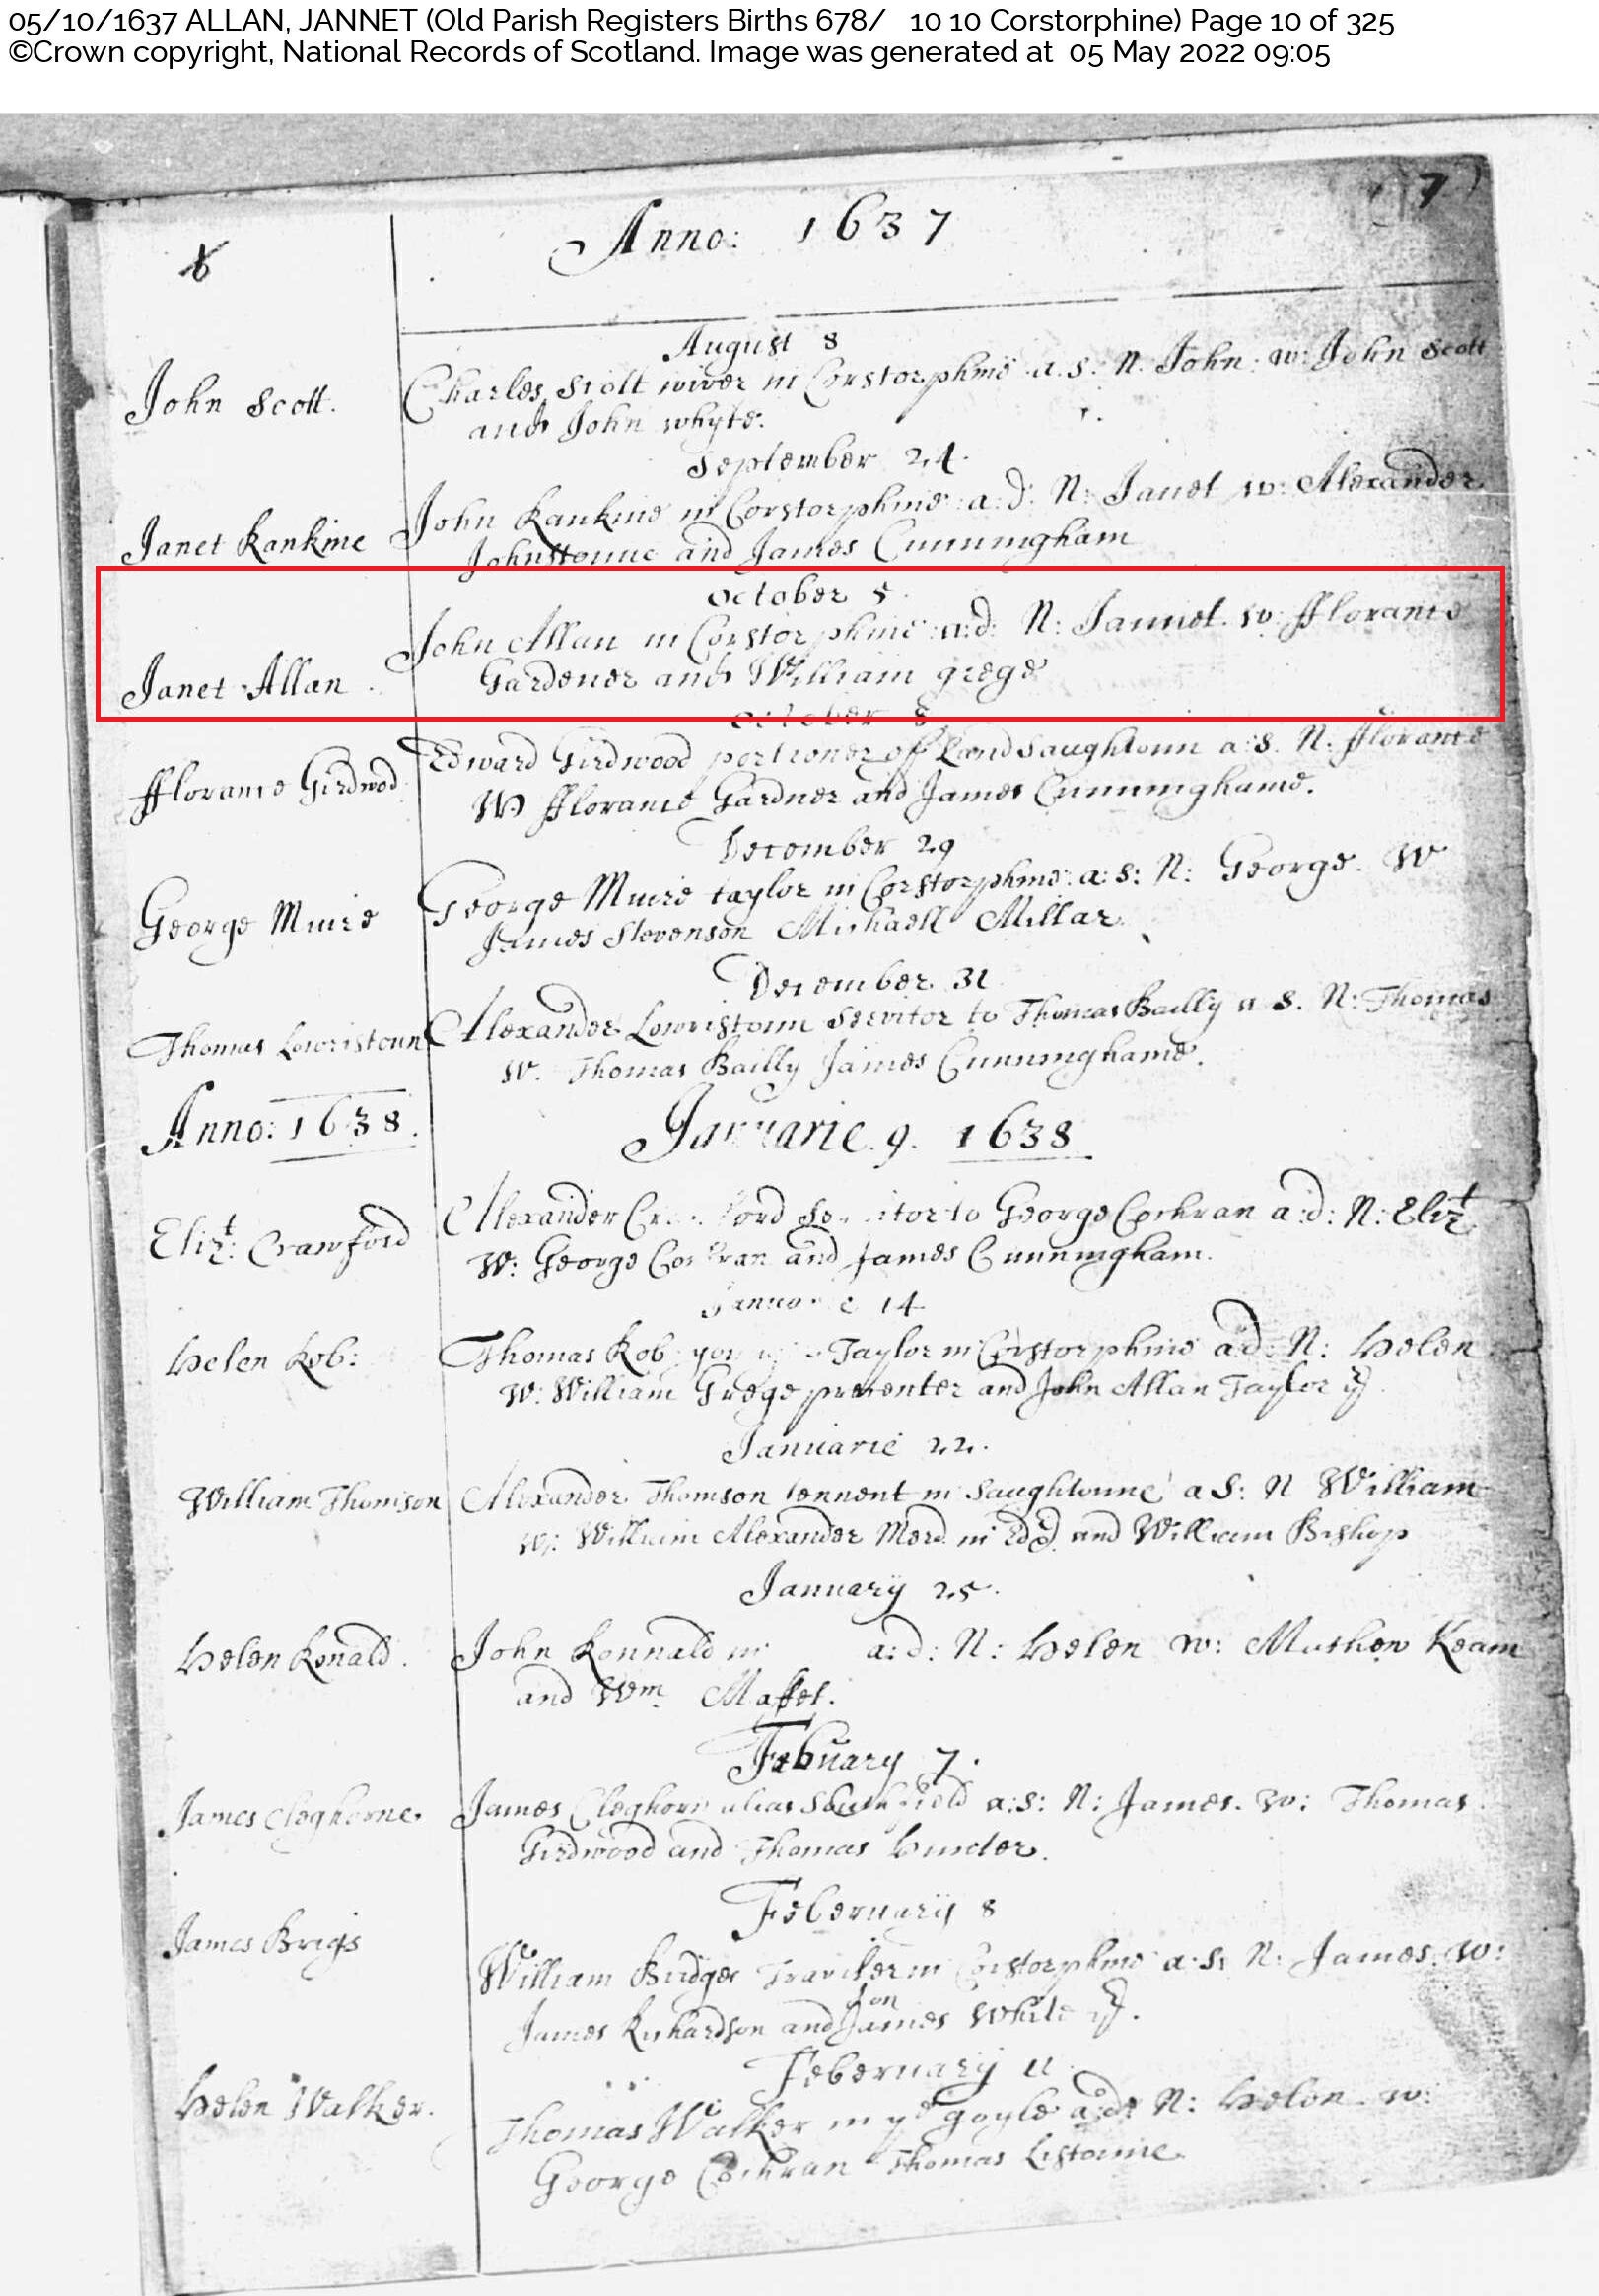 05/10/1637 ALLAN, JANNET (Old Parish Registers Births 678/ 10 10 Corstorphine) Page 10 of 325
©Crown copyright, National Records of Scotland. Image was generated at 05 May 2022 09:05
7
Anno: 1637
6
August 8
John Scott.
Charles Scott wiver in Corstorphine a.s: N: John: w: John Scott
and John whyte.
September 24.
Janet Rankine
John Rankine in Corstorphine a:d: N: Janet w: Alexander
Johnstoune and James Cunningham
october 5.
Janet Allan.
John Allan in Corstorphine a:d: N: Jannet. w: fflorance
Gardener and William grege
october 8
fflorance Girdwod
Edward Girdwood portioner of Landsaughtoun a:s. N: fflorance
W fflorance Gardner and James Cunninghame.
December 29
George Muire
George Muire taylor in Corstorphine: a:s: N: George. W
James Stevenson Michaell Millar.
December 31
Thomas Lowristoun
Alexander Lowristoun Servitor to Thomas Bailly a s. N: Thomas
W. Thomas Bailly James Cunninghame.
Anno: 1638.
Januarie. 9. 1638
Elizt: Crawford
Alexander to George Cochran a:d: N: Elizt
W: George Cochran and James Cunningham.
14
Helen Rob:
Thomas Rob Taylor in Corstorphine a:d: N: Helen
W: William Grege presenter and John Allan Taylor yr.
Januarie 22.
William Thomson
Alexander Thomson tennent in Saughtoune a S: N William
w: William Alexander Merd. in Edr. and William Bishop
January 25.
Helen Ronald.
John Ronnald in a:d: N: Helen w: Mathew Keam
and Wm Maffet.
Febuary 7.
James Cleghorne.
James Cleghorn alias Southfield a:s: N: James. w: Thomas
Girdwood and Thomas Hunter.
Febervary 8
James Brigs
William Bridges in Corstorphine a:s: N: James. w:
Jon
James Richardson and James White yr.
Febervary 11
Helen Walker.
Thomas Walker in ye goyle a:d: N: Helen w:
George Cochran Thomas Listoune